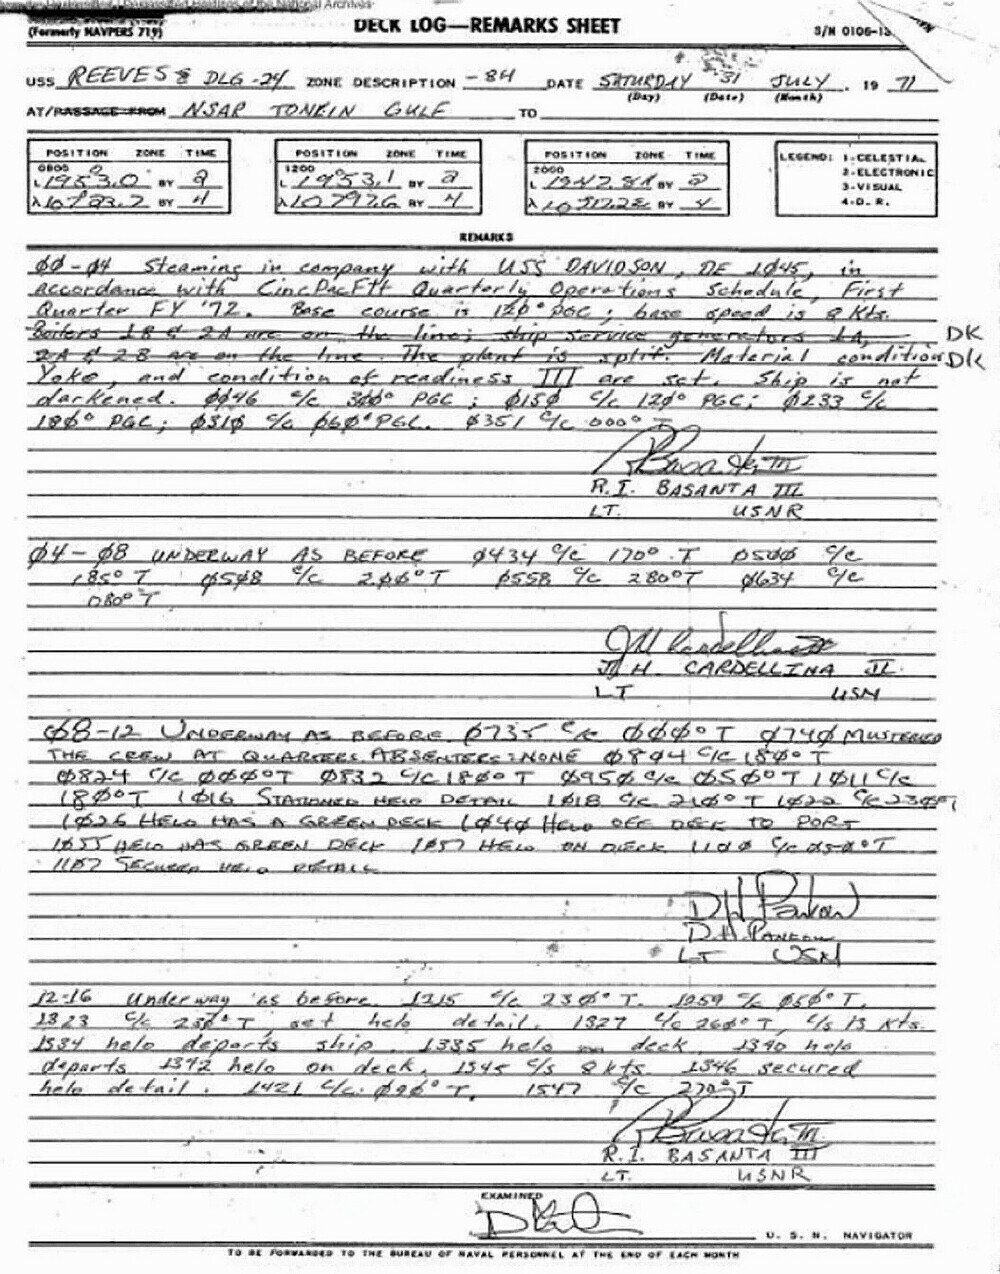 DECK LOG—REMARKS SHEET
(Formerly NAVPERS 719)
S/N 0106-13
USS REEVES DLG-24 ZONE DESCRIPTION -8H DATE SATURDAY 31 JULY 19 71
(Day) (Date) (Month)
AT/PASSAGE FROM NSAR TONKIN GULF TO
POSITION ZONE TIME POSITION ZONE TIME POSITION ZONE TIME LEGEND: 1-CELESTIAL
0800 1200 2000 2-ELECTRONIC
L 1953.0 BY 2 L 1953.1 BY 2 L BY 2 3-VISUAL
λ BY 4 λ 10797.6 BY 4 λ BY 4 4-D.R.
REMARKS
ØØ-Ø4 Steaming in company with USS DAVIDSON, DE 1Ø45, in
accordance with CincPacFlt Quarterly Operations Schedule, First
Quarter FY '72. Base course is 12Ø° PGC; base speed is 8 Kts.
Boilers 1B & 2A are on the line; ship service generators 1A, DK
2A & 2B are on the line. The plant is split. Material condition DK
Yoke, and condition of readiness III are set. Ship is not
darkened. ØØ46 c/c 3ØØ° PGC; Ø15Ø c/c 12Ø° PGC; Ø233 c/c
18Ø° PGC; Ø31Ø c/c Ø6Ø° PGC. Ø351 c/c 000° T
R. I. BASANTA III
LT. USNR
Ø4-Ø8 UNDERWAY AS BEFORE Ø434 c/c 170° T Ø5ØØ c/c
185° T Ø548 c/c 2ØØ° T Ø558 c/c 280° T Ø634 c/c
080° T
J. H. CARDELLINA II
LT USN
Ø8-12 UNDERWAY AS BEFORE Ø735 c/c ØØØ° T Ø74Ø MUSTERED
THE CREW AT QUARTERS ABSENTEES: NONE Ø8Ø4 c/c 18Ø° T
Ø824 c/c ØØØ° T Ø832 c/c 18Ø° T Ø95Ø c/c Ø5Ø° T 1Ø11 c/c
18Ø° T 1Ø16 STATIONED HELO DETAIL 1Ø18 c/c 21Ø° T 1Ø22 c/c 23Ø° T
1Ø26 HELO HAS A GREEN DECK 1Ø4Ø HELO OFF DECK TO PORT
1Ø55 HELO HAS GREEN DECK 1Ø57 HELO ON DECK 11ØØ c/c Ø5Ø° T
11Ø7 SECURED HELO DETAIL
D. H. PANKOW
LT USN
12-16 Underway as before. 1215 c/c 23Ø° T. 1259 c/c Ø5Ø° T.
1323 c/c 23Ø° T, set helo detail. 1327 c/c 26Ø° T, c/s 13 kts.
1334 helo departs ship. 1335 helo on deck. 1340 helo
departs. 1342 helo on deck. 1345 c/s 8 kts. 1346 secured
helo detail. 1421 c/c Ø9Ø° T. 1547 c/c 270° T
R. I. BASANTA III
LT. USNR
EXAMINED
U. S. N. NAVIGATOR
TO BE FORWARDED TO THE BUREAU OF NAVAL PERSONNEL AT THE END OF EACH MONTH